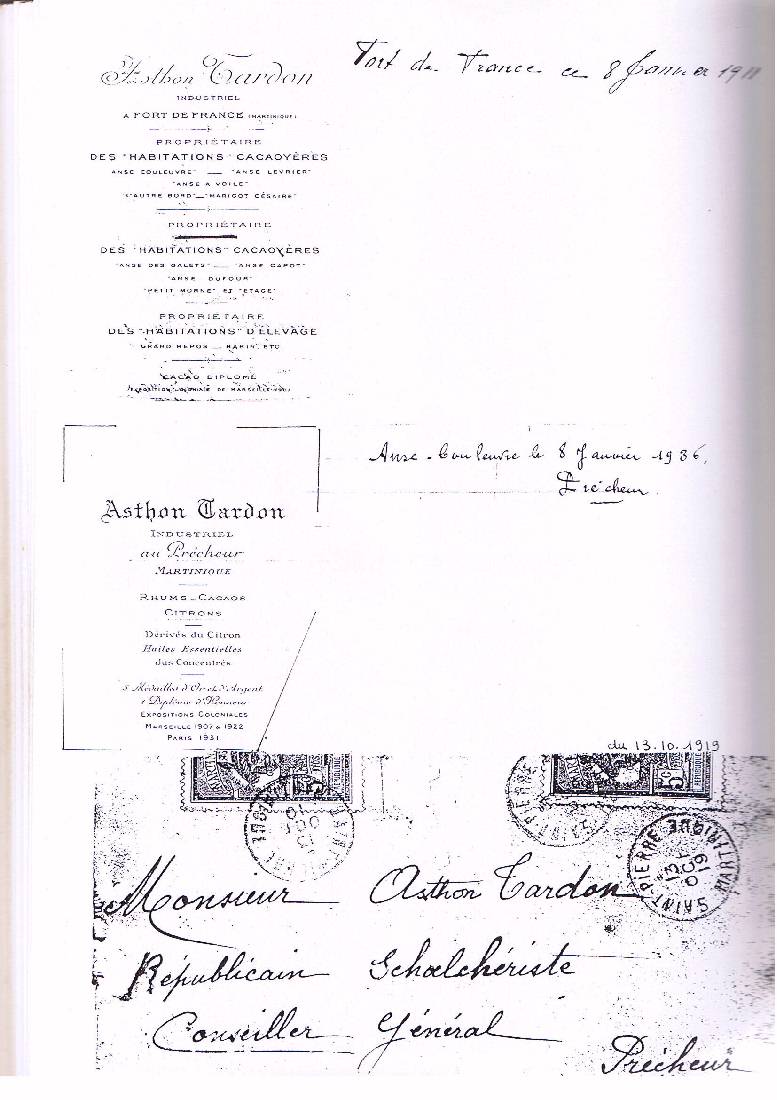 Asthon Tardon
INDUSTRIEL
A FORT DE FRANCE (MARTINIQUE)
Fort de France ce 8 Janvier
PROPRIÉTAIRE
DES "HABITATIONS" CACAOYÈRES
ANSE COULEUVRE" — "ANSE LEVRIER"
"ANSE A VOILE"
"L'AUTRE BORD"—"MARIGOT CÉSAIRE"
PROPRIÉTAIRE
DES "HABITATIONS" CACAOYÈRES
"ANSE DES GALETS" — "ANSE CAPOT"
"ANSE DUFOUR"
"PETIT MORNE" ET "ETAGE"
PROPRIÉTAIRE
DES "HABITATIONS" D'ÉLEVAGE
GRAND REPOS ETC
CACAO DIPLOMÉ
EXPOSITION COLONIALE DE MARSEILLE
Anse-Couleuvre le 8 Janvier 1936,
Prêcheur
Asthon Tardon
INDUSTRIEL
au Prêcheur
MARTINIQUE
RHUMS - CACAOS
CITRONS
Dérivés du Citron
Huiles Essentielles
Jus Concentrés
5 Médailles d'Or et d'Argent
Diplôme d'Honneur
EXPOSITIONS COLONIALES
MARSEILLE 1907 & 1922
PARIS 1931
du 13.10.1919
SAINT-PIERRE
13
OCT
SAINT-PIERRE
SAINT PIERRE MARTINIQUE
13
OCT
19
Monsieur Asthon Tardon
Républicain Schœlchériste
Conseiller Général
Prêcheur